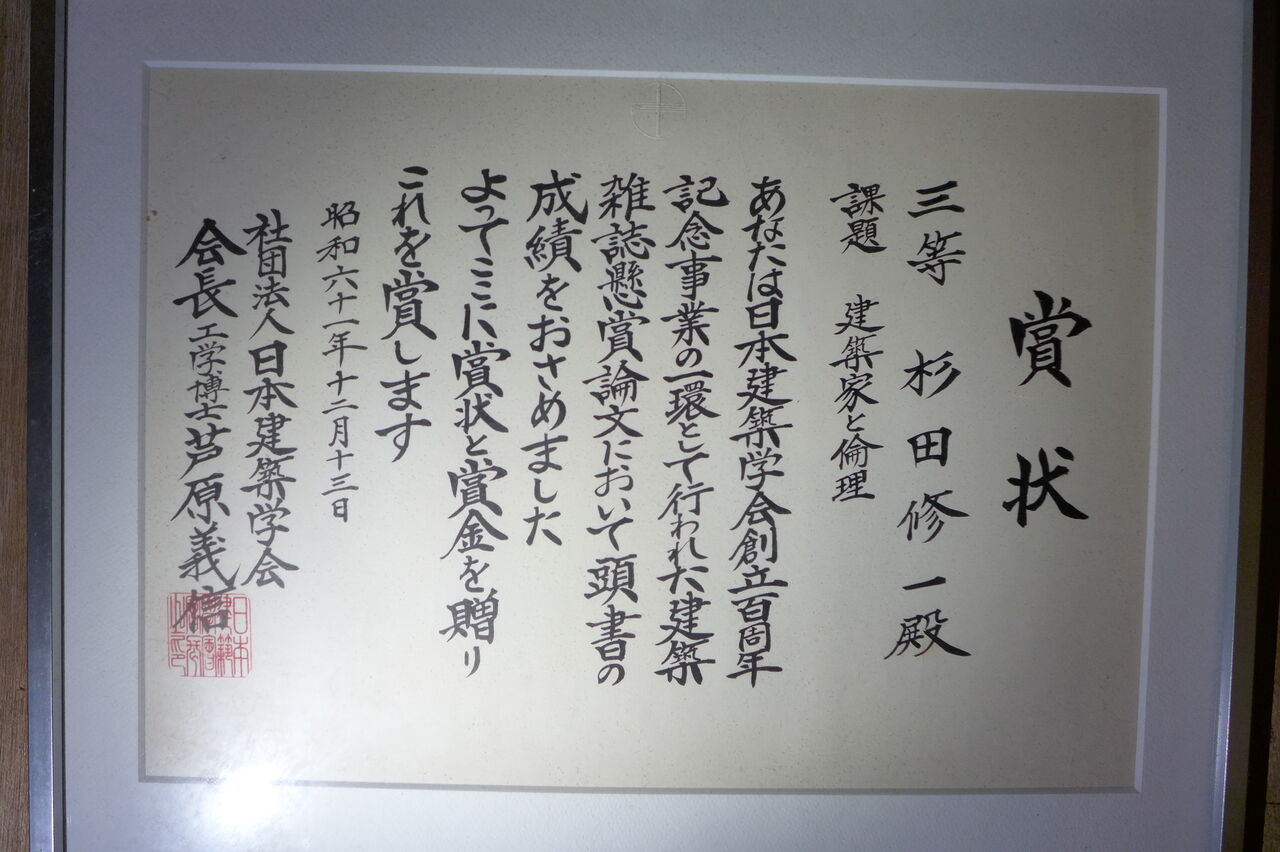 賞状
三等 杉田修一殿
課題 建築家と倫理
あなたは日本建築学会創立百周年
記念事業の一環として行われた建築
雑誌懸賞論文において頭書の
成績をおさめました
よってここに賞状と賞金を贈り
これを賞します
昭和六十一年十二月十三日
社団法人日本建築学会
会長工学博士芦原義信